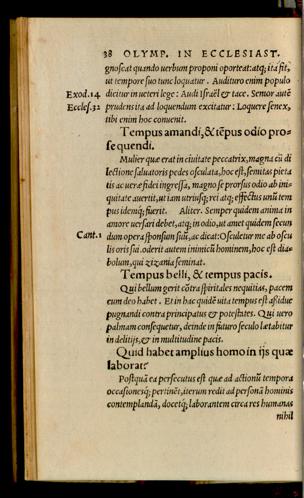 38 OLYMP. IN ECCLESIAST.
gnoscat quando uerbum proponi oporteat: atq; ita fit,
ut tempore suo tunc loquatur. Audituro enim populo
Exod. 14 dicitur in ueteri lege: Audi Israël & tace. Senior autē
Eccles. 32 prudens ita ad loquendum excitatur: Loquere senex,
tibi enim hoc conuenit.
Tempus amandi, & tēpus odio pro-
sequendi.
Mulier quæ erat in ciuitate peccatrix, magna cū di
lectione saluatoris pedes osculata, hoc est, semitas pieta
tis ac ueræ fidei ingressa, magno se prorsus odio ab ini-
quitate auertit, ut iam utriusq; rei atq; effectus unū tem
pus idemq; fuerit. Aliter. Semper quidem anima in
amore uersari debet, atq; in odio, ut amet quidem secun
Cant. 1 dum opera sponsum suū, ac dicat: Osculetur me ab oscu
lis oris sui. oderit autem inimicū hominem, hoc est dia-
bolum, qui zizania seminat.
Tempus belli, & tempus pacis.
Qui bellum gerit cōtra spiritales nequitias, pacem
cum deo habet. Et in hac quidē uita tempus est assidue
pugnandi contra principatus & potestates. Qui uero
palmam consequetur, deinde in futuro seculo lætabitur
in delitijs, & in multitudine pacis.
Quid habet amplius homo in ijs quæ
laborat?
Postquā ea persecutus est quæ ad actionū tempora
occasionesq; pertinēt, iterum redit ad personā hominis
contemplandā, docetq; laborantem circa res humanas
nihil